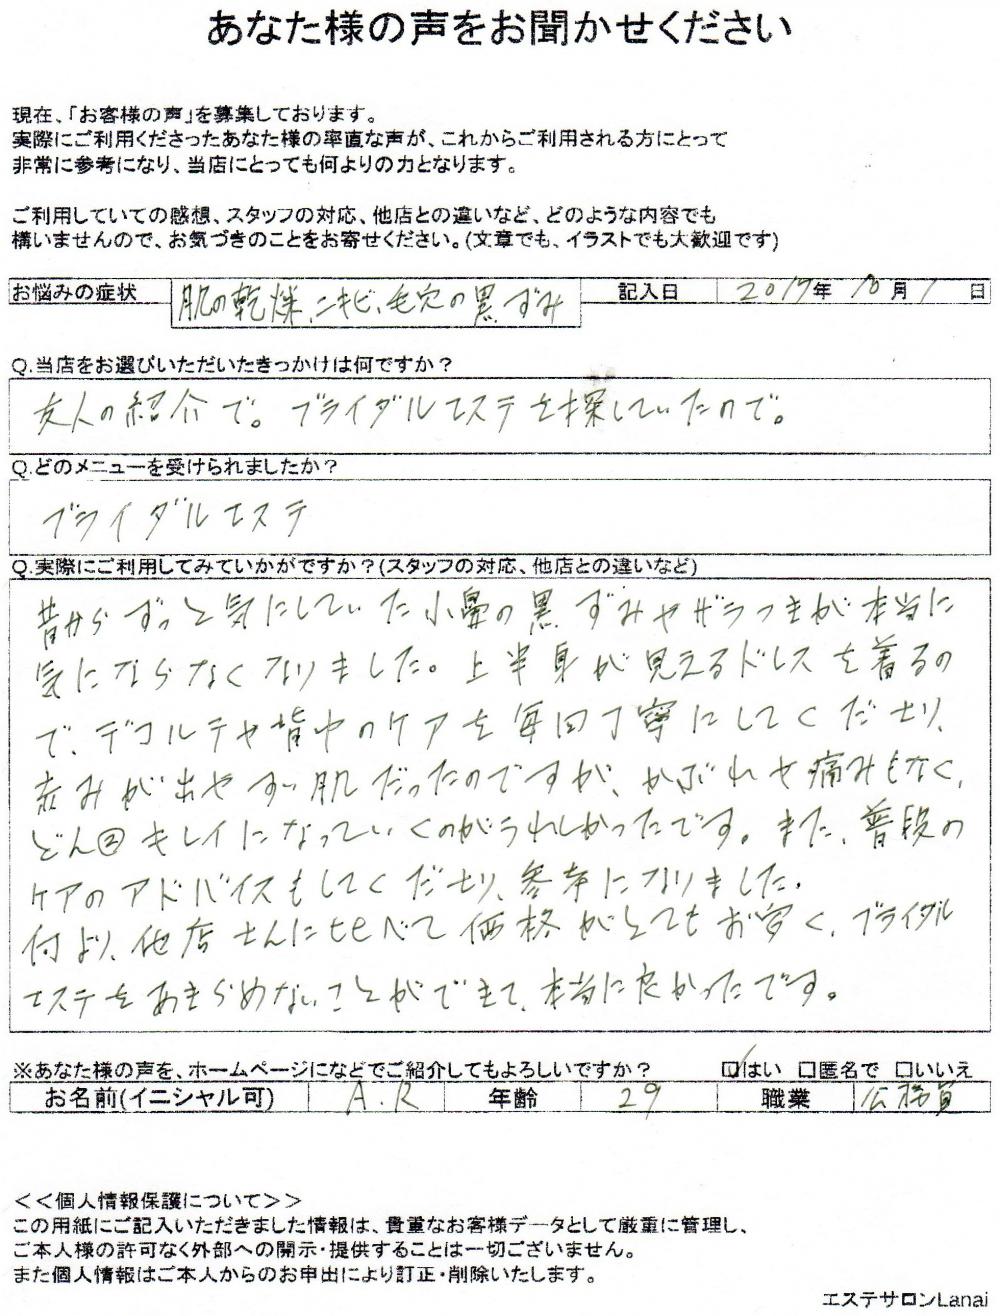 あなた様の声をお聞かせください
現在、「お客様の声」を募集しております。
実際にご利用くださったあなた様の率直な声が、これからご利用される方にとって
非常に参考になり、当店にとっても何よりの力となります。
ご利用していての感想、スタッフの対応、他店との違いなど、どのような内容でも
構いませんので、お気づきのことをお寄せください。(文章でも、イラストでも大歓迎です)
お悩みの症状 肌の乾燥、ニキビ、毛穴の黒ずみ 記入日 2017年 10月 1 日
Q.当店をお選びいただいたきっかけは何ですか？
友人の紹介で。ブライダルエステを探していたので。
Q.どのメニューを受けられましたか？
ブライダルエステ
Q.実際にご利用してみていかがですか？(スタッフの対応、他店との違いなど)
昔からずっと気にしていた小鼻の黒ずみやザラつきが本当に
気にならなくなりました。上半身が見えるドレスを着るの
で、デコルテや背中のケアを毎回丁寧にしてくださり、
赤みが出やすい肌だったのですが、かぶれや痛みもなく、
どん②キレイになっていくのがうれしかったです。また、普段の
ケアのアドバイスもしてくださり、参考になりました。
何より、他店さんに比べて価格がとてもお安く、ブライダル
エステをあきらめないことができて、本当に良かったです。
※あなた様の声を、ホームページになどでご紹介してもよろしいですか？ ☑はい □匿名で □いいえ
お名前(イニシャル可) A.R 年齢 29 職業 公務員
<<個人情報保護について>>
この用紙にご記入いただきました情報は、貴重なお客様データとして厳重に管理し、
ご本人様の許可なく外部への開示・提供することは一切ございません。
また個人情報はご本人からのお申出により訂正・削除いたします。
エステサロンLanai